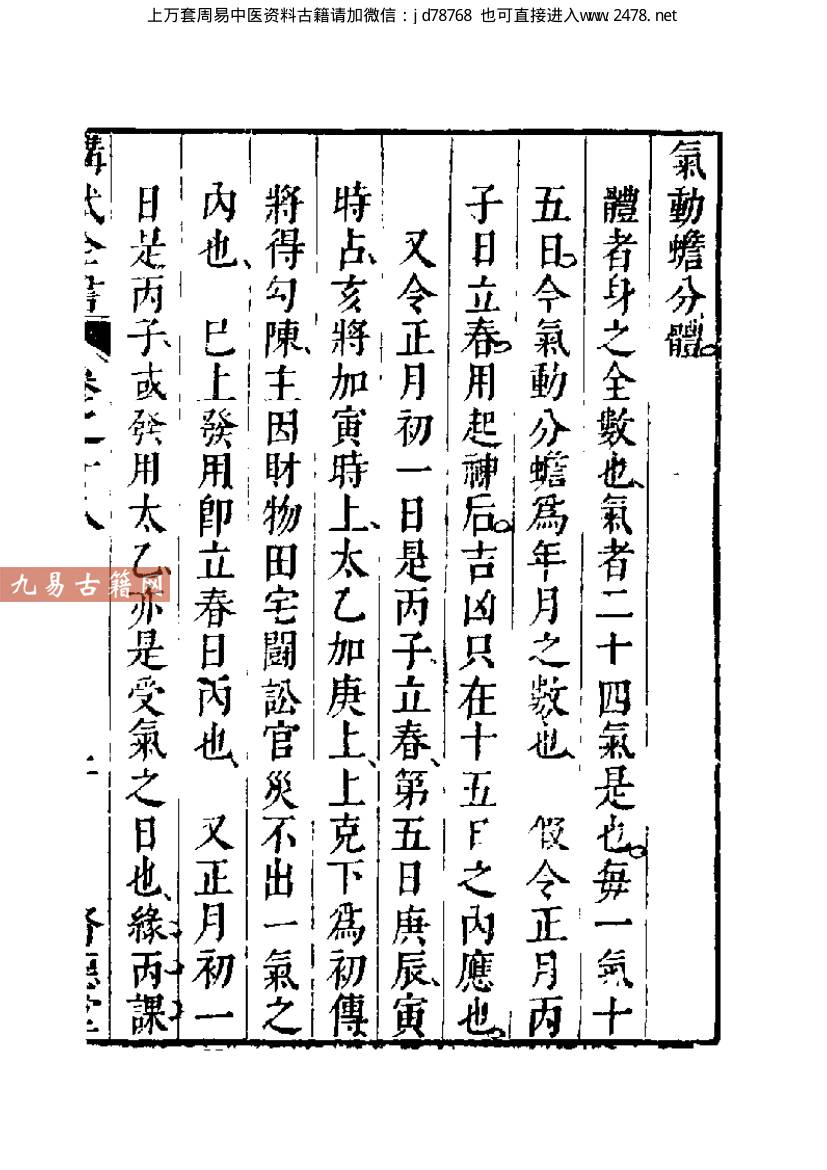 上万套周易中医资料古籍请加微信：jd78768 也可直接进入www.2478.net
氣動蟾分體。
體者身之全數也、氣者二十四氣是也。每一氣十
五日。今氣動分蟾爲年月之數也 假令正月丙
子日立春。用起神后。吉凶只在十五日之內應也、
又令正月初一日是丙子、立春、第五日庚辰、寅
時占、亥將加寅時上、太乙加庚上、上克下爲初傳
將得勾陳、主因財物田宅鬪訟官災不出一氣之
內也、 巳上發用卽立春日丙也、 又正月初一
日是丙子、或發用太乙、亦是受氣之日也、緣丙課
武全書 卷之十八
九易古籍网